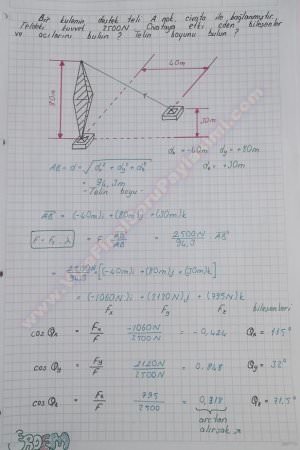 Bir kulenin destek teli A nok. civata ile bağlanmıştır.
Teldeki kuvvet 2500N Civataya etki eden bileşenler
ve açılarını bulun? Telin boyunu bulun?
40m
80m
30m
dx = -40m dy = +80m
dz = +30m
AB = d = √dx² + dy² + dz²
= 94,3m
Telin boyu
AB = (-40m)i + (80m)j + (30m)k
F = F . λ = F AB/AB = 2500N/94,3 AB
= 2500N/94,3 [(-40m)i + (80m)j + (30m)k]
= (-1060N)i + (2120N)j + (795N)k
Fx Fy Fz bileşenleri
cos Qx = Fx/F = -1060N/2500N = -0,424 Qx = 115°
cos Qy = Fy/F = 2120N/2500N = 0,848 Qy = 32°
cos Qz = Fz/F = 795/2500 = 0,318 Qz = 71,5°
arctan
alırsak